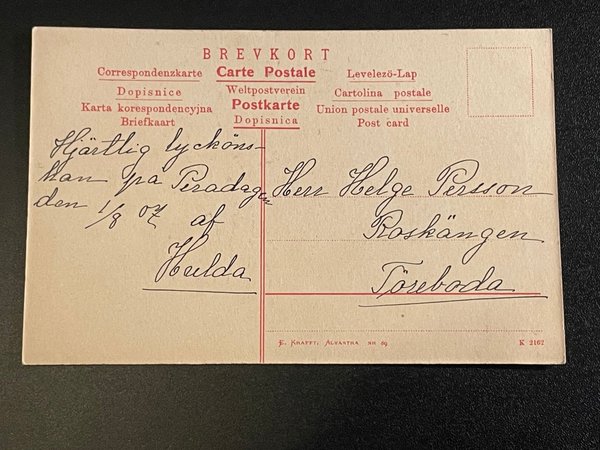 BREVKORT
Correspondenzkarte Carte Postale Levelezö-Lap
Dopisnice Weltpostverein Cartolina postale
Karta korespondencyjna Postkarte Union postale universelle
Briefkaart Dopisnica Post card
Hjärtlig lycköns-
kan på Peradagen
den 1/8 07 af
Hulda
Herr Helge Persson
Roskängen
Töreboda
E. KRAFFT, ALVASTRA NR 89
K 2162